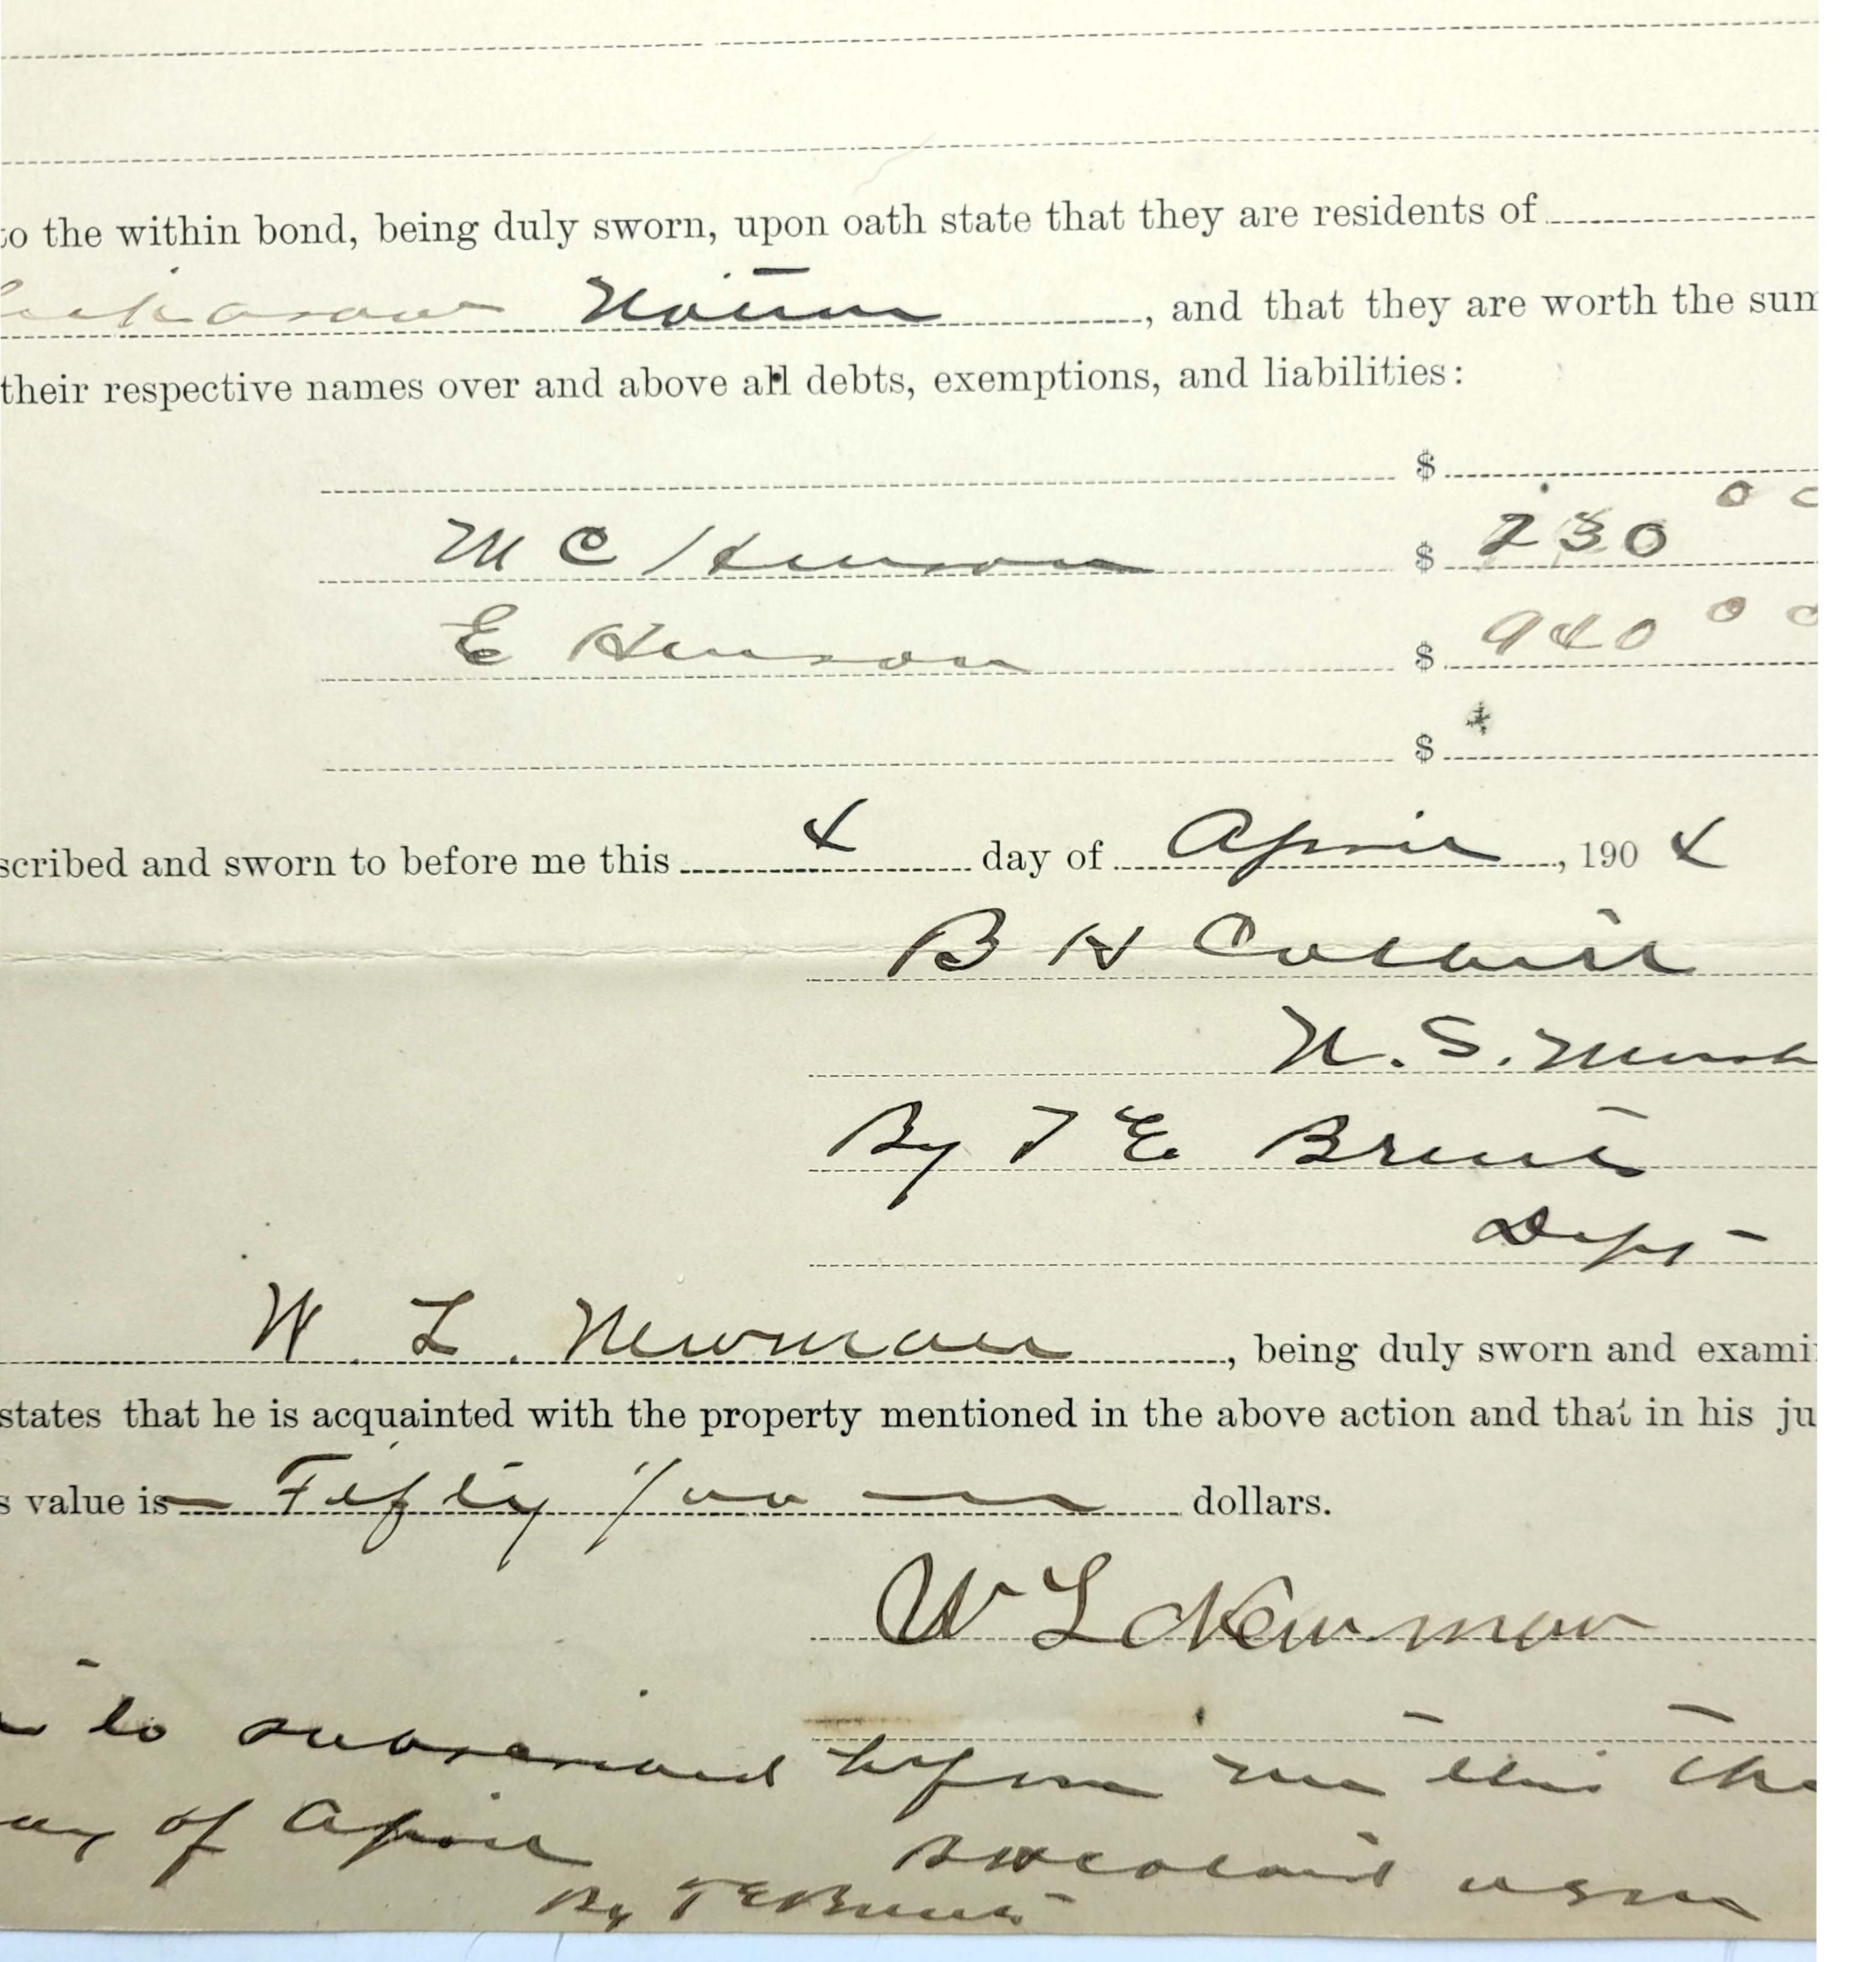 to the within bond, being duly sworn, upon oath state that they are residents of
Chickasaw Nation, and that they are worth the sum
their respective names over and above all debts, exemptions, and liabilities:
$
M C Henson $ 230 00
E Henson $ 940 00
$
scribed and sworn to before me this 4 day of April, 1904
B H Colbert
U.S. Marsh
By T E Brents
Dept
W. L. Newman, being duly sworn and exami
states that he is acquainted with the property mentioned in the above action and that in his ju
s value is Fifty /00 dollars.
W L Newman
to subscribed before me this the
day of April B H Colbert USM
By T E Brents